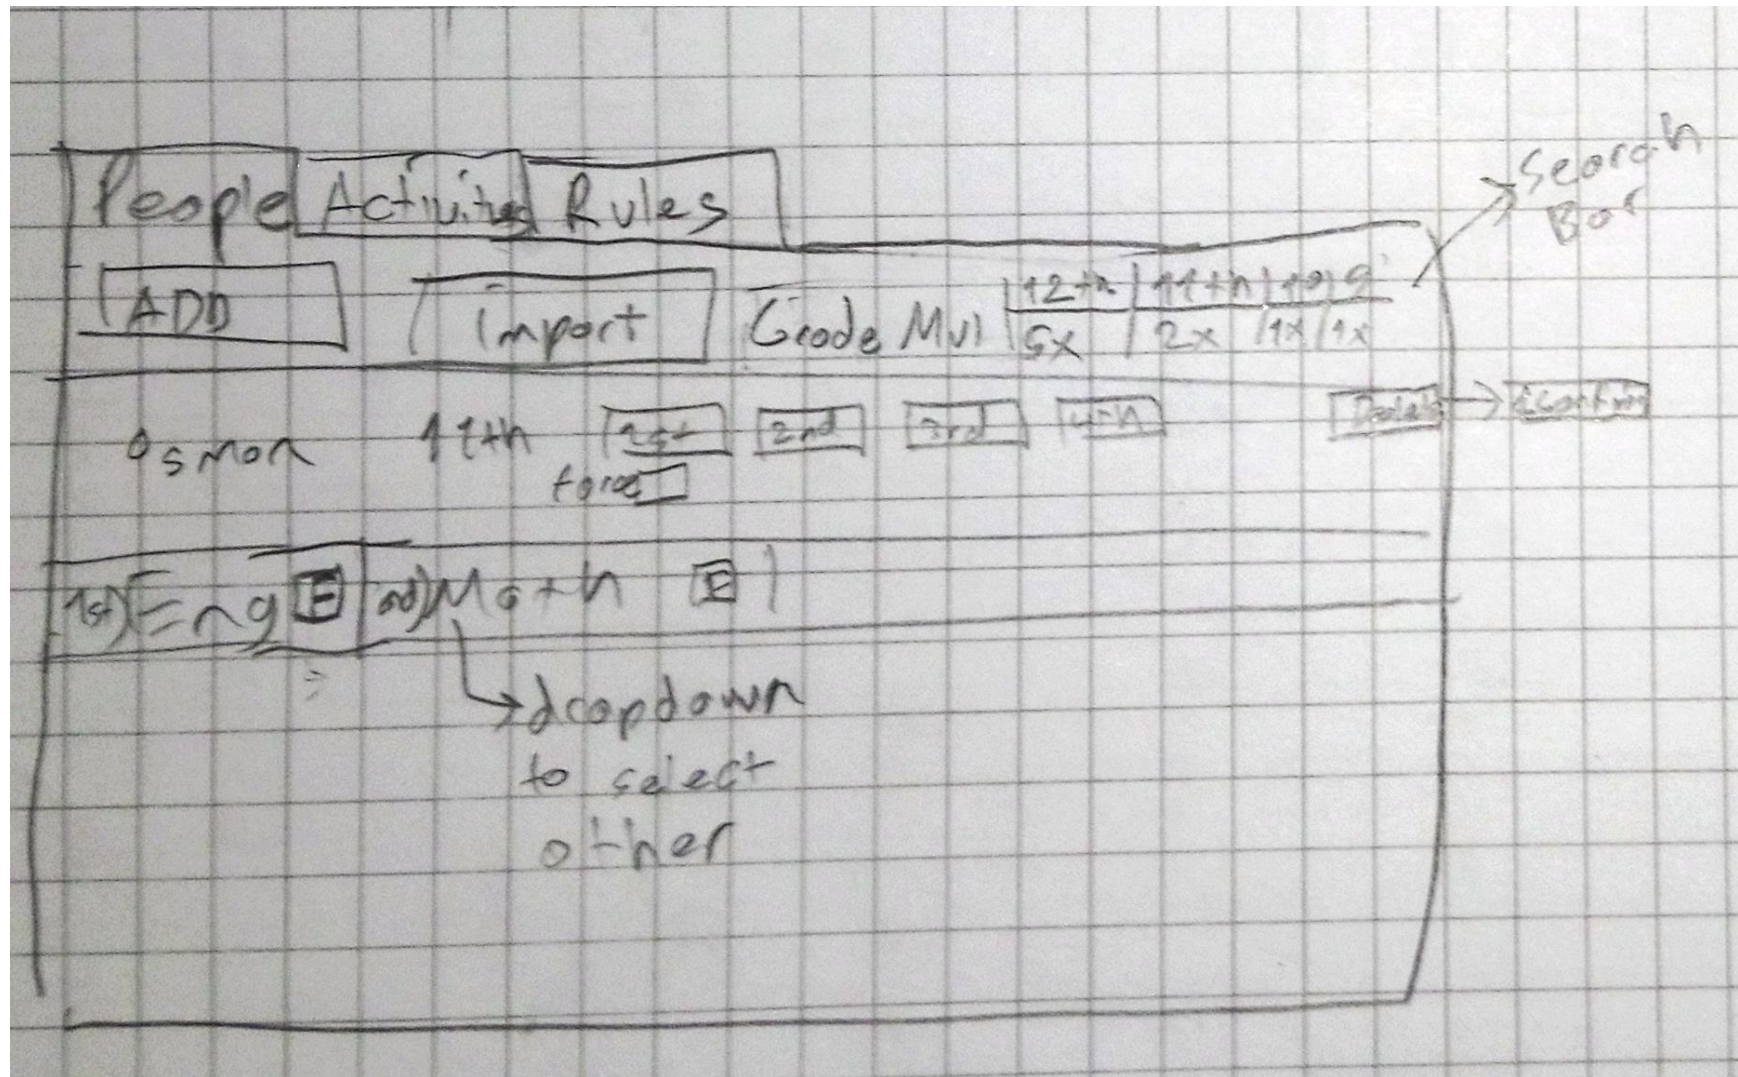 People Activities Rules
Search
Bar
ADD Import Grade Mul 12th 11th 10 9
5x 2x 1x 1x
Osman 11th 1st 2nd 3rd 4th Delete
force
1st) Eng E 2nd) Math E
dropdown
to select
other